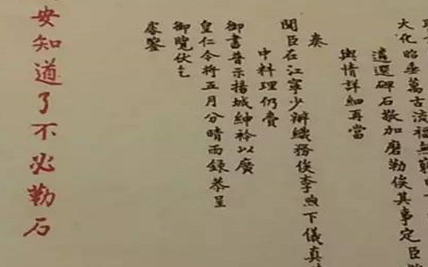 大化昭垂萬古流福無窮
遴選碑石敬加磨勒俟其事定臣
輿情詳細再當
奏
聞臣在江寧少辦織務俟李煦下儀真
中料理仍賫
御書普示揚城紳衿以廣
皇仁今將五月分晴雨錄恭呈
御覽伏乞
睿鑒
安知道了不必勒石